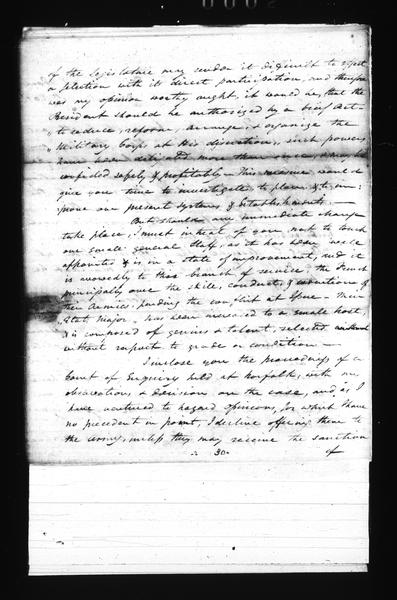 of the Legislature may render it difficult to effect
a selection with its direct participation, and therefore
was my opinion worthy aught, it would be, that the
President should be authorised by a brief Act
"to reduce, reform, arrange, & organize the
"Military Corps at his discretion, such powers
have been delegated more than once, & may be
confided safely & profitably - This measure would
give you time to investigate, to place & to im-
prove our present Systems & Establishments. —
But should an immediate change
take place, I must intreat of you not to touch
our small general Staff, as it has been well
appointed & is in a state of improvement, and it
is avowedly to this branch of service the French
principally owe the skill, conduct, & execution of
their Armies, pending the conflict at
"Etat, Major" has been increased to a small host,
& is composed of genius & talent, selected
without respect to grade or condition —
I inclose you the proceedings of a
Court of Enquiry held at Norfolk, with my
observations & decision on the case, and, as I
have ventured to hazard opinions, for which I have
no precedent in point, I decline offering them to
the Army, untill they may receive the sanction
30
of